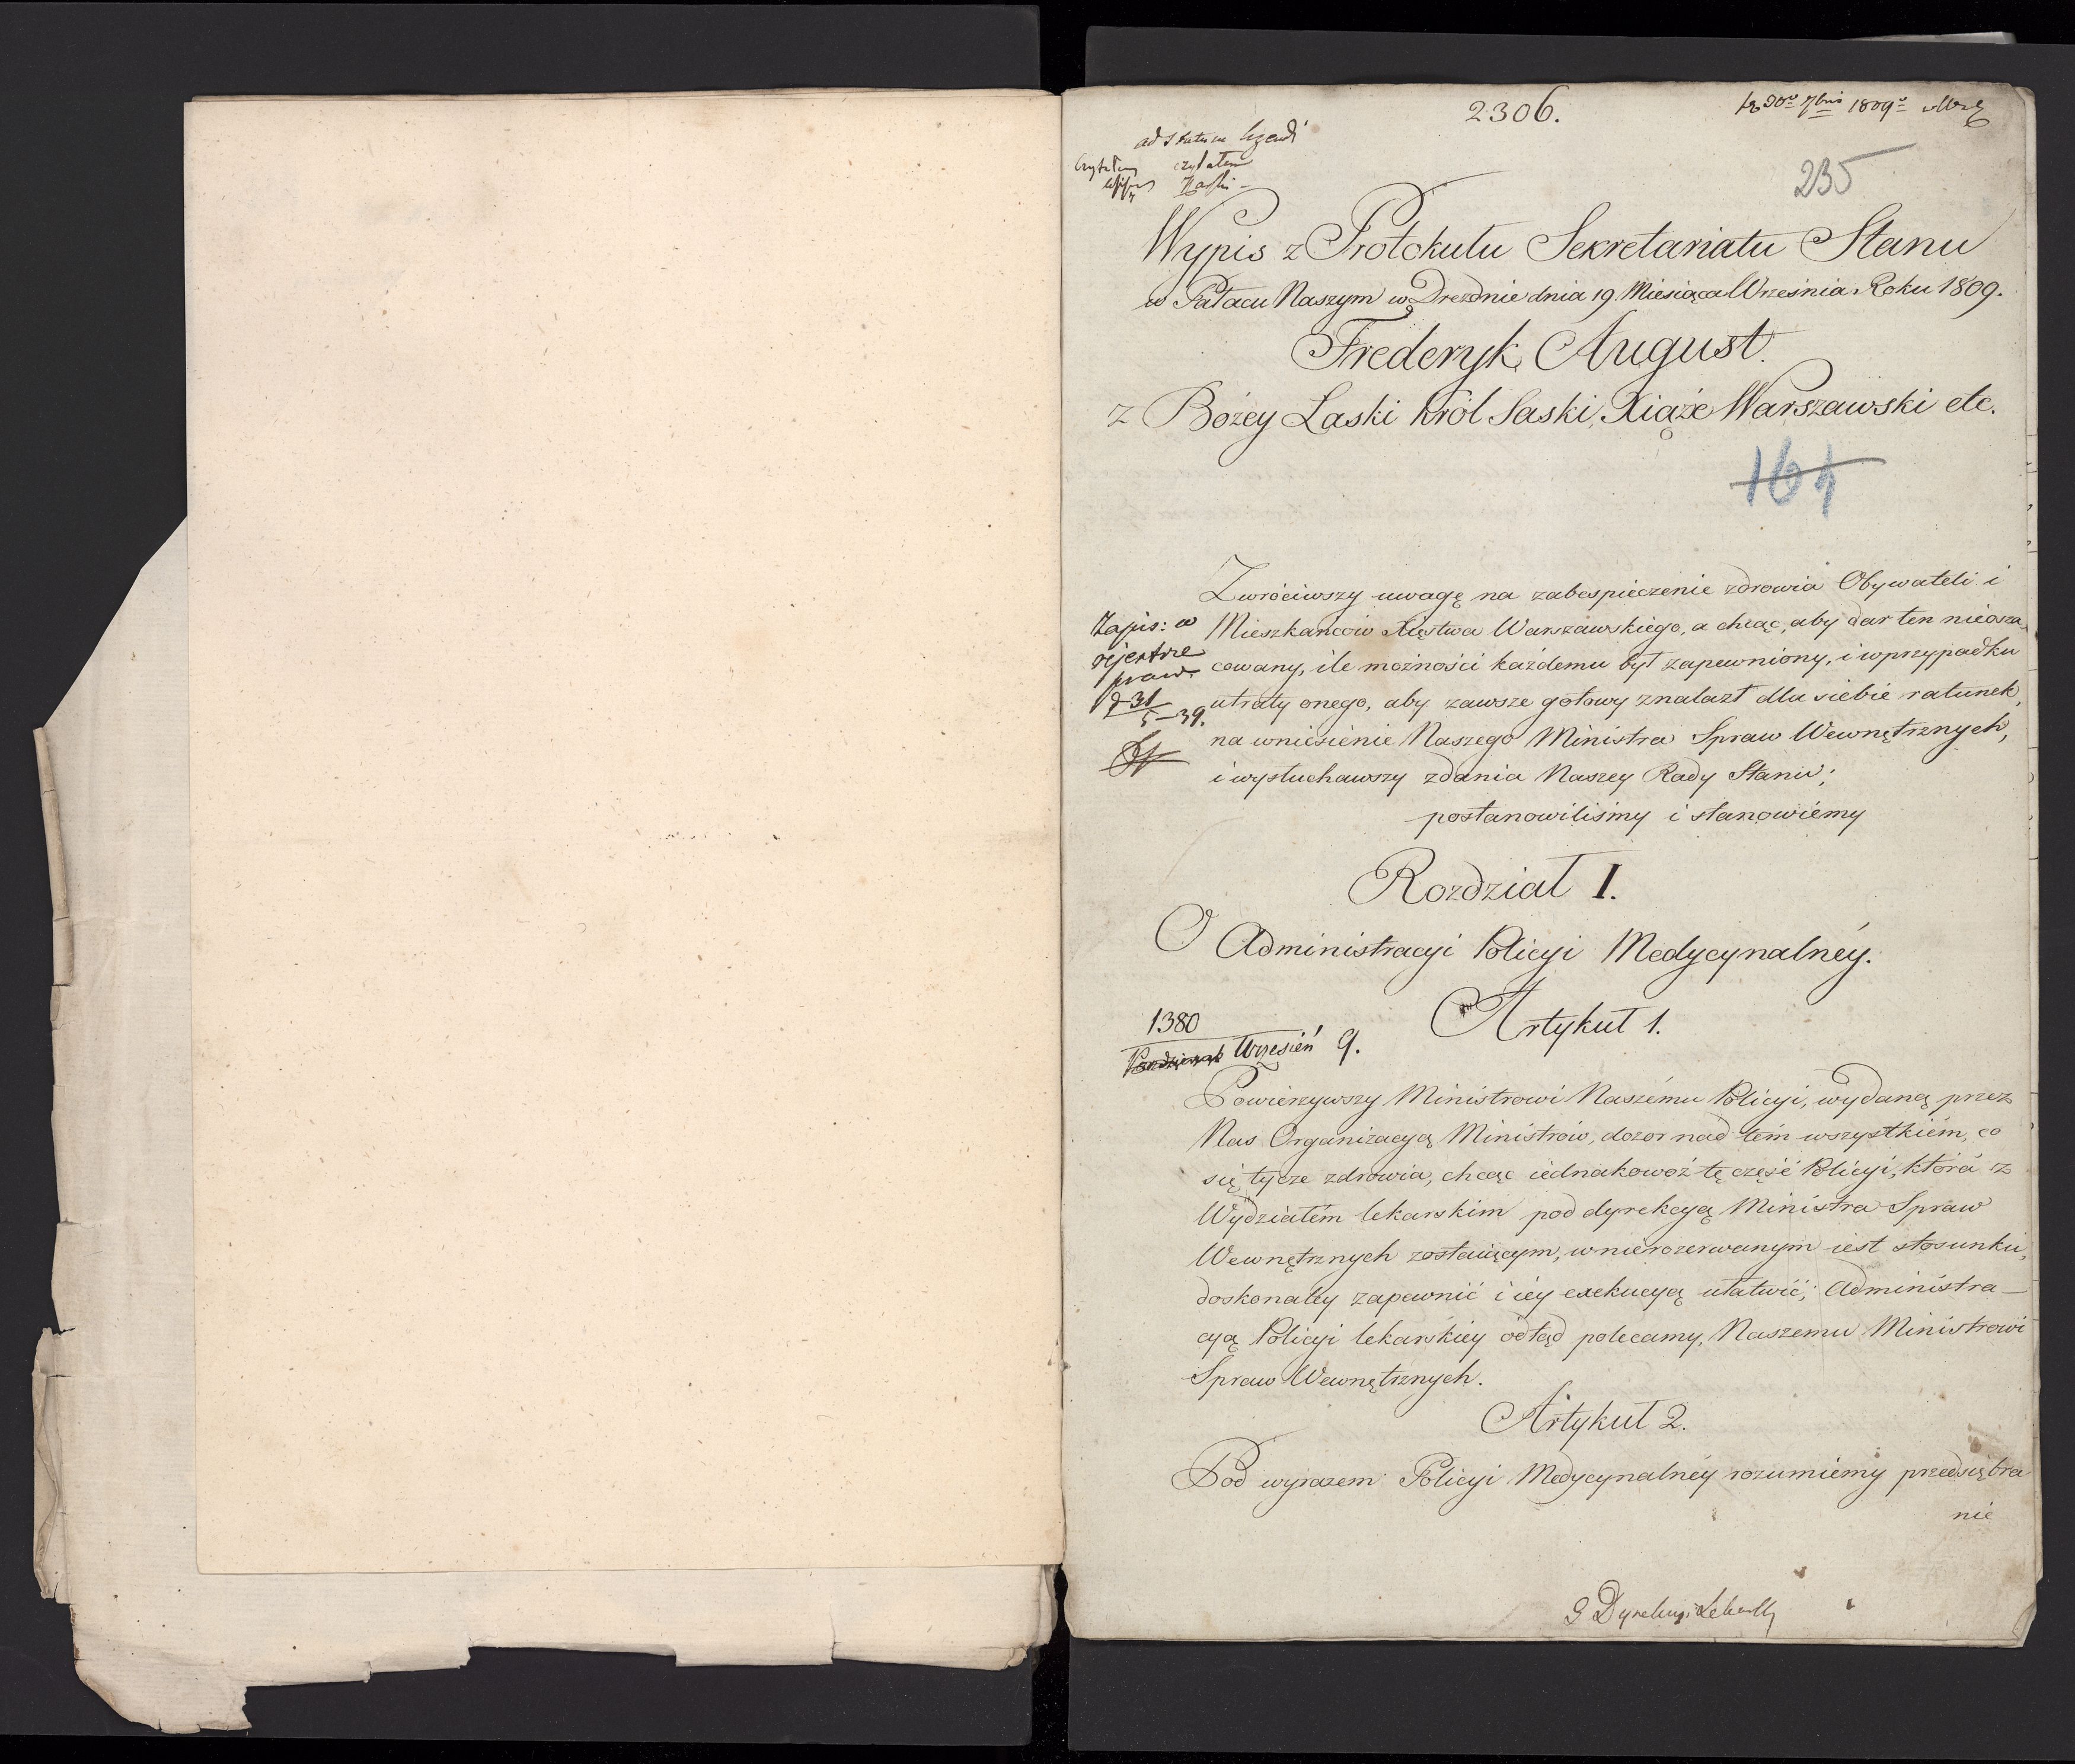 2306.
1809
ad statum legendi
czytałem
235
Wypis z Protokułu Sekretariatu Stanu
w Pałacu Naszym w Dreznie dnia 19. Miesiąca Września Roku 1809.
Frederyk August.
z Bożey Łaski Król Saski, Xiąże Warszawski etc.
164
Zwróciwszy uwagę na zabespieczenie zdrowia Obywateli i
Mieszkańców Xięstwa Warszawskiego, a chcąc, aby dar ten nieosza-
cowany, ile możności każdemu był zapewniony, i w przypadku
utraty onego, aby zawsze gotowy znalazł dla siebie ratunek,
na wniesienie Naszego Ministra Spraw Wewnętrznych,
i wysłuchawszy zdania Naszey Rady Stanu;
postanowiliśmy i stanowiémy
Zapis: w
rejestrze
praw.
d 31/5 – 39.
Rozdział I.
O Administracyi Policyi Medycynalnéy.
Artykuł 1.
1380
Wrzesień 9.
Powierzywszy Ministrowi Naszému Policyi, wydaną przez
Nas Organizacyą Ministrów, dozor nad tém wszystkiém, co
się tycze zdrowia, chcąc iednakowoż tę część Policyi, która z
Wydziałém lekarskim pod dyrekcyą Ministra Spraw
Wewnętrznych zostaiącym, w nierozerwanym iest stosunku,
doskonaley zapewnić i iéy exekucyą ułatwić; Administra-
cyą Policyi lekarskiéy odtąd polecamy, Naszemu Ministrowi
Spraw Wewnętrznych.
Artykuł 2.
Pod wyrazem Policyi Medycynalnéy rozumiémy przedsiębra
nie